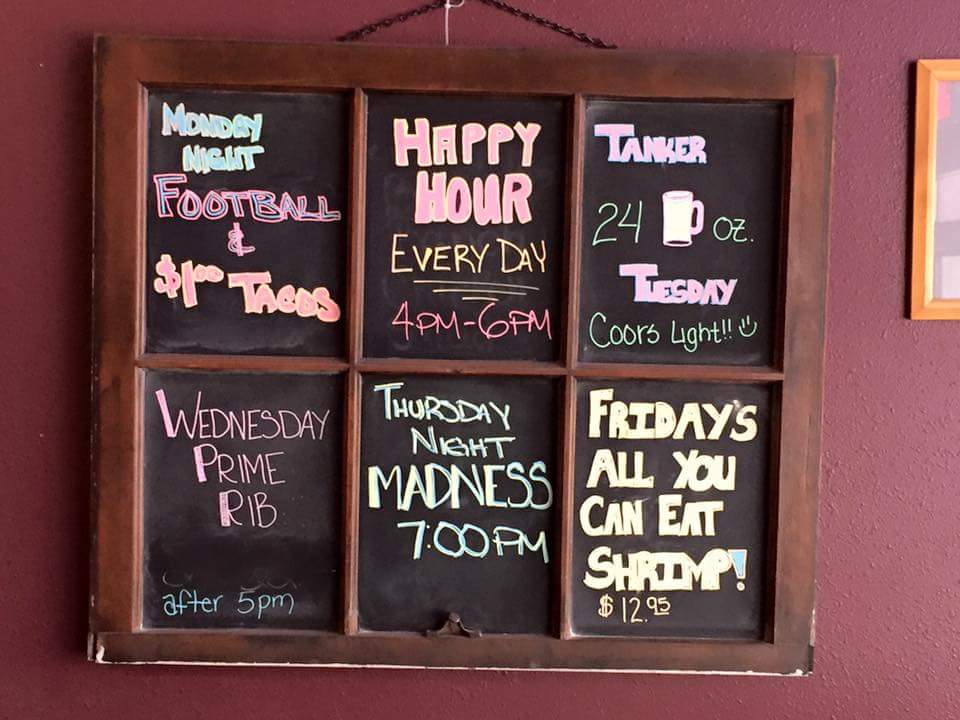 MONDAY
NIGHT
FOOTBALL
&
$1.00 TACOS
HAPPY
HOUR
EVERY DAY
4PM-6PM
TANKER
24 oz.
TUESDAY
Coors Light!!
WEDNESDAY
PRIME
RIB
after 5pm
THURSDAY
NIGHT
MADNESS
7:00PM
FRIDAYS
ALL YOU
CAN EAT
SHRIMP!
$12.95